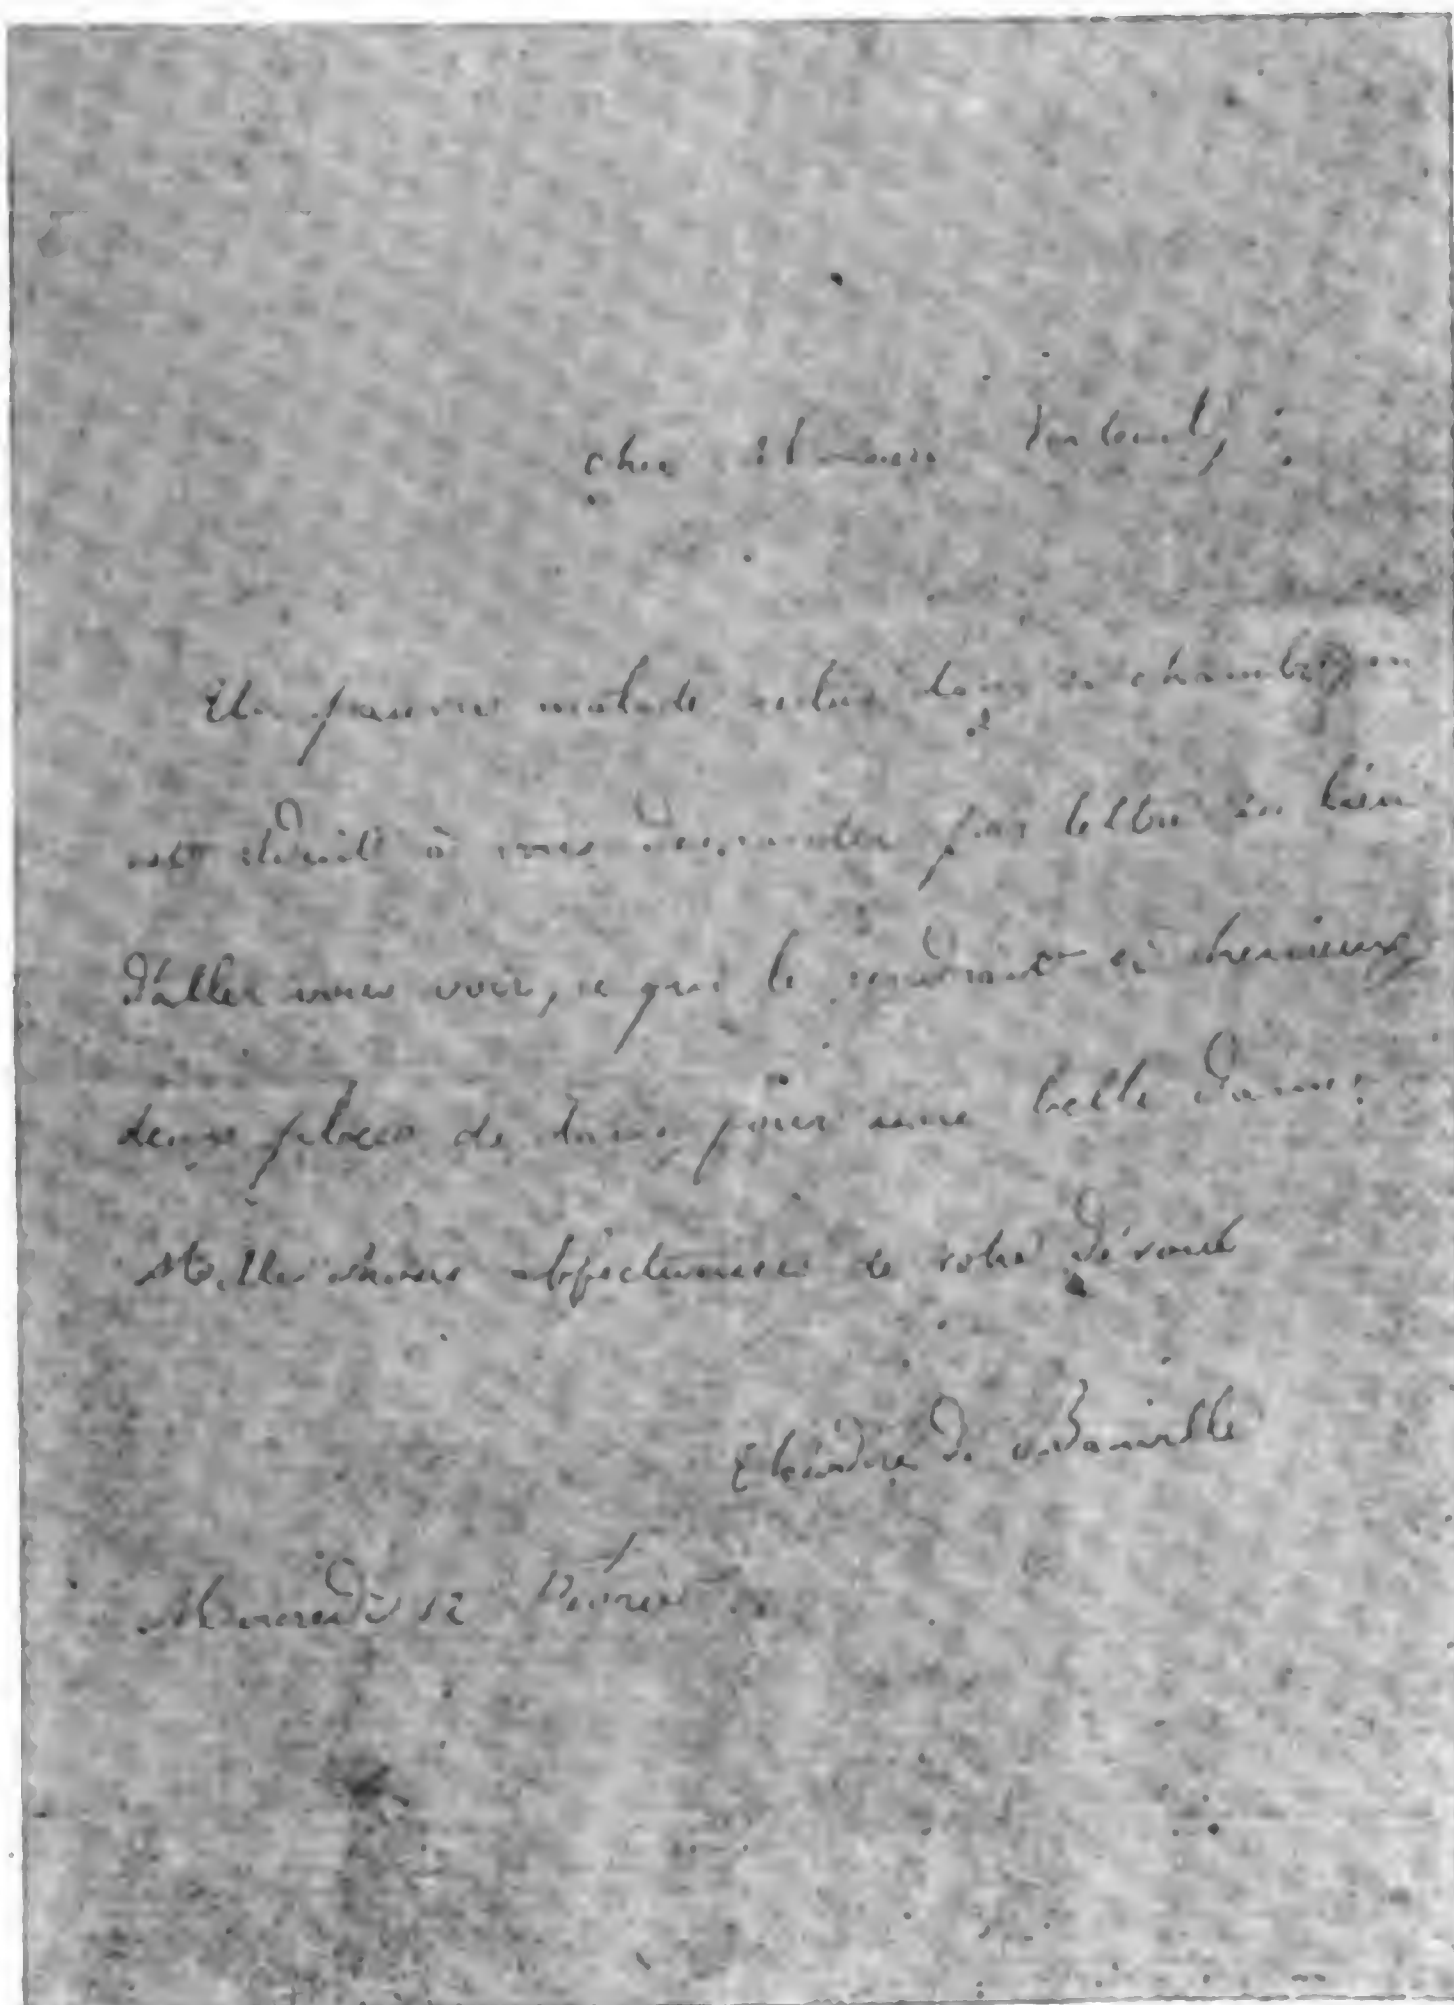 cher
Un pauvre malade reclus dans sa chambre, en
est réduit à vous demander par lettre au lieu
d'aller vous voir, ce qui le rendrait si heureux,
deux places de pour une belle dame.
Mille choses affectueuses de votre dévoué
Théodore de Banville
Mercredi 12 Février.